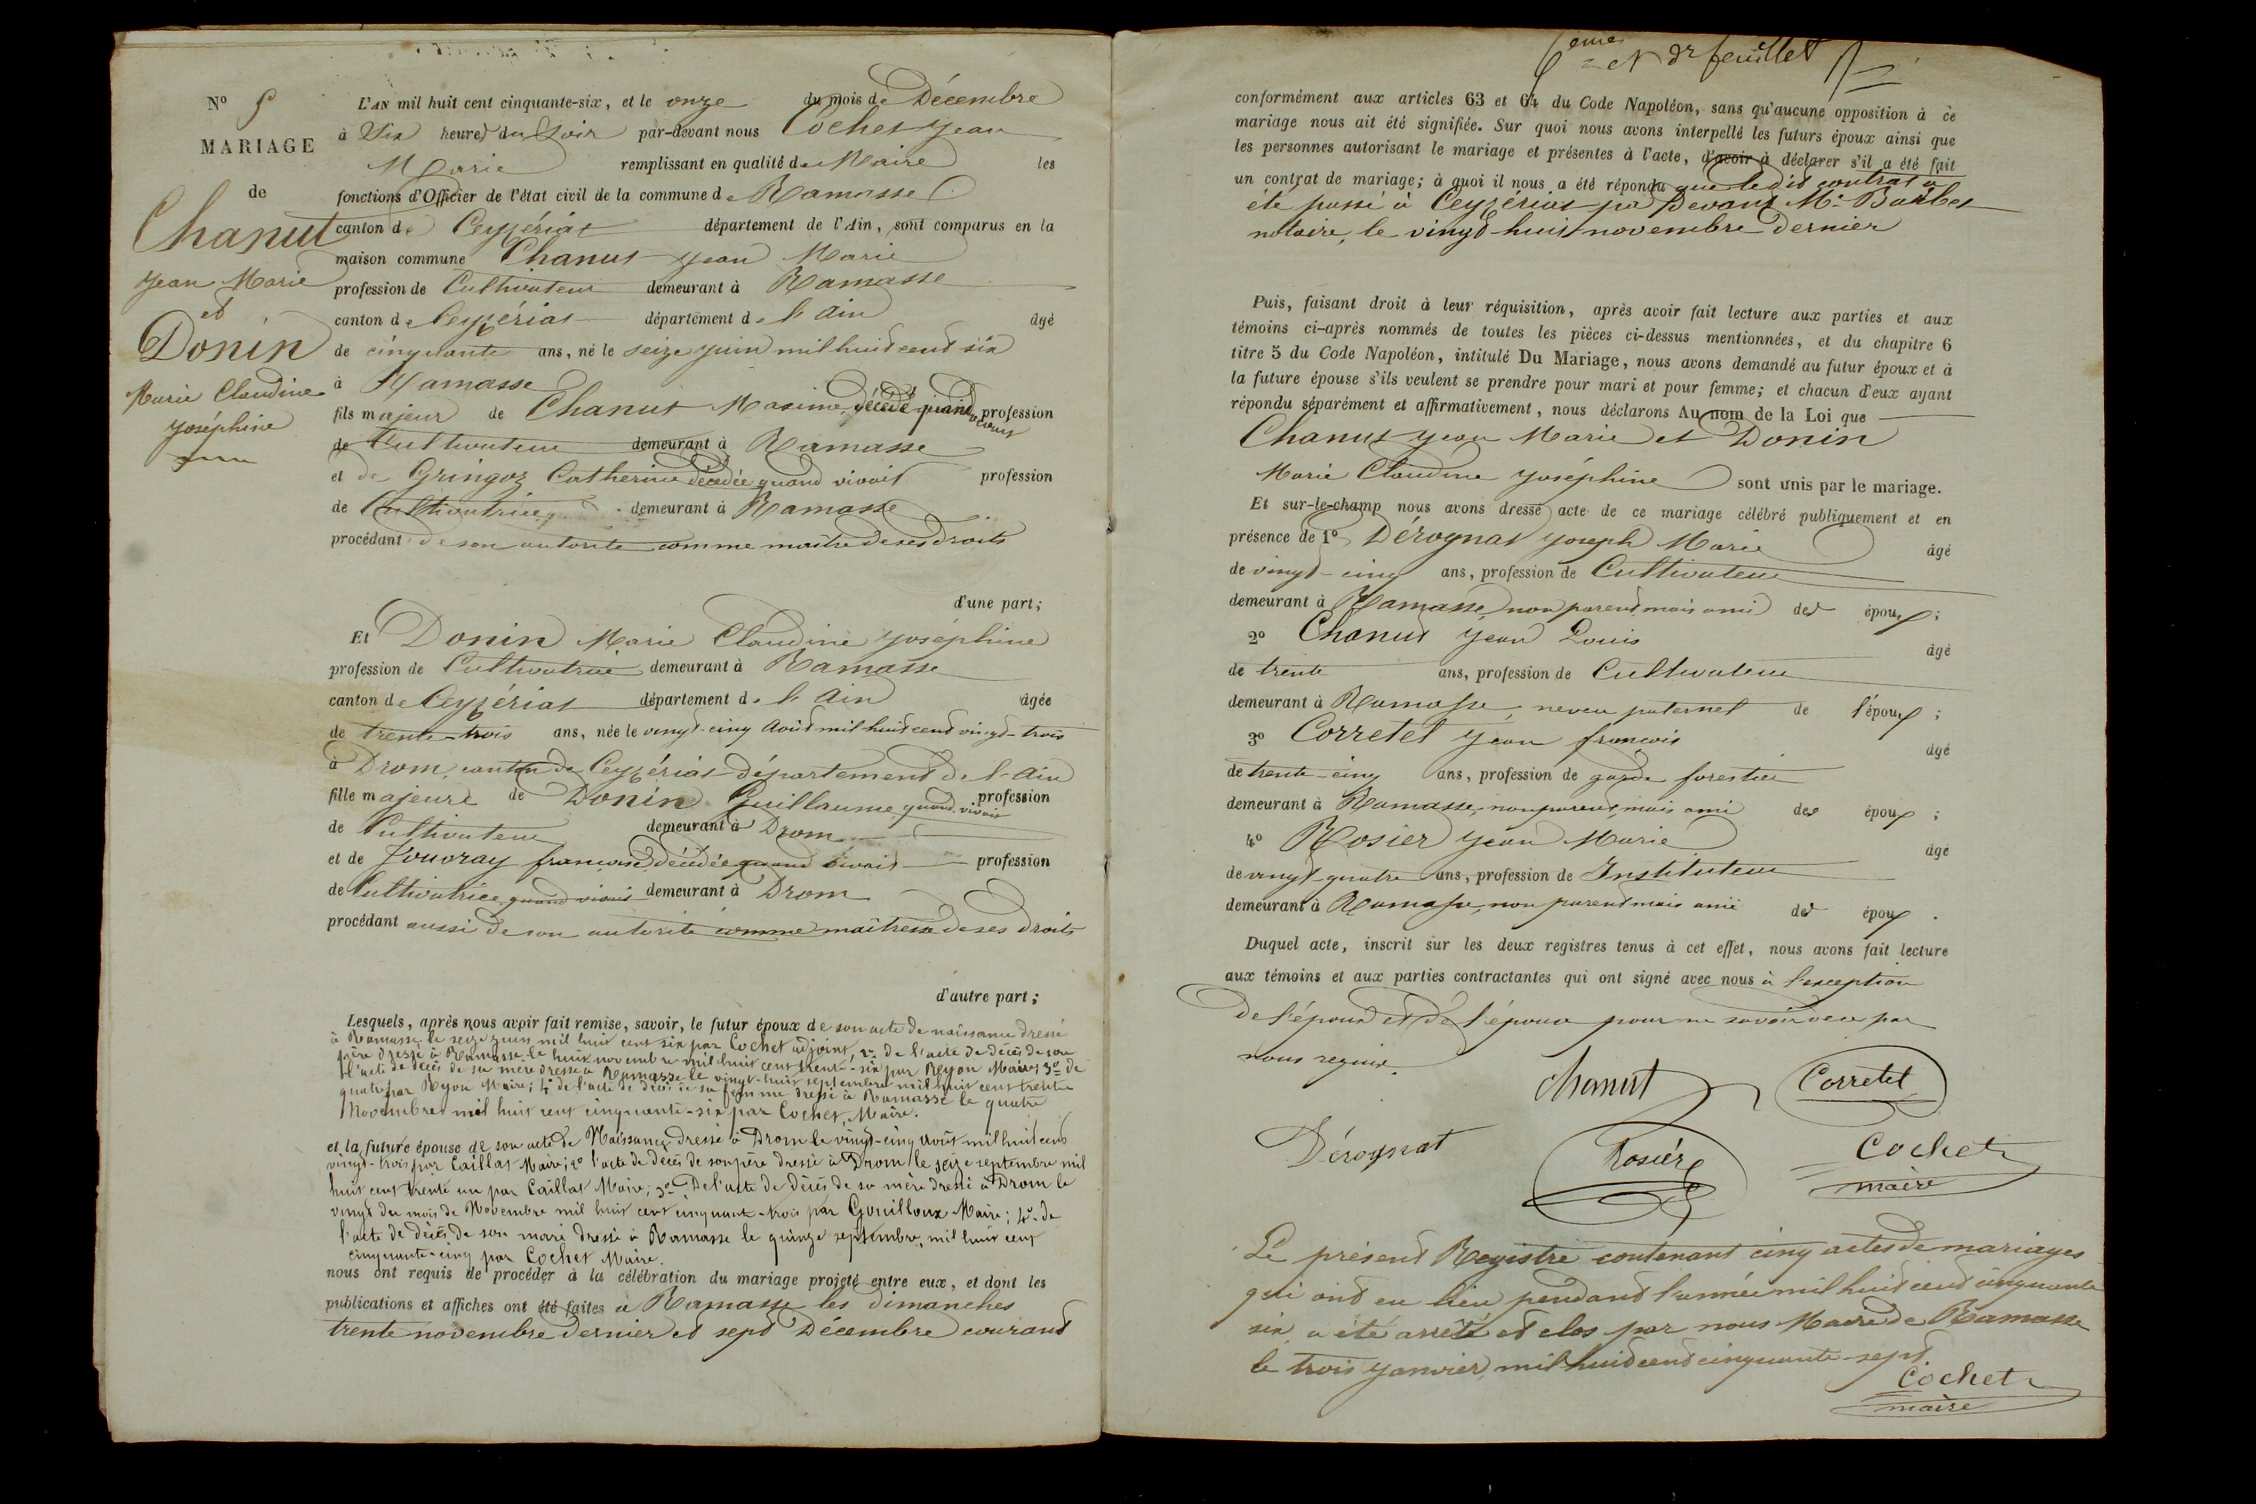 N° 5
MARIAGE
de
Chanut
Jean Marie
et
Donin
Marie Claudine
Joséphine
L'AN mil huit cent cinquante-six, et le onze du mois de Décembre
à Six heures du Soir par-devant nous Cochet Jean
Marie remplissant en qualité de Maire les
fonctions d'Officier de l'état civil de la commune de Ramasse
canton de Ceyzériat département de l'Ain, sont comparus en la
maison commune Chanut Jean Marie
profession de Cultivateur demeurant à Ramasse
canton de Ceyzériat département de l'Ain âgé
de cinquante ans, né le seize juin mil huit cent six
à Ramasse
fils majeur de Chanut Maxime, décédé quand vivait profession
de Cultivateur demeurant à Ramasse
et de Gringoz Catherine décédée quand vivait profession
de Cultivatrice demeurant à Ramasse
procédant de son autorité comme maître de ses droits
d'une part;
Et Donin Marie Claudine Joséphine
profession de Cultivatrice demeurant à Ramasse
canton de Ceyzériat département de l'Ain âgée
de trente-trois ans, née le vingt-cinq Août mil huit cent vingt-trois
à Drom, canton de Ceyzériat département de l'Ain
fille majeure de Donin Guillaume quand vivait profession
de Cultivateur demeurant à Drom
et de Jouvray françoise décédée quand vivait profession
de Cultivatrice quand vivait demeurant à Drom
procédant aussi de son autorité comme maîtresse de ses droits
d'autre part;
Lesquels, après nous avoir fait remise, savoir, le futur époux de son acte de naissance dressé
à Ramasse le seize juin mil huit cent six par Cochet adjoint, 2° de l'acte de décès de son
père dressé à Ramasse le huit novembre mil huit cent trente-six par Reyon Maire; 3° de
l'acte de décès de sa mère dressé à Ramasse le vingt-huit septembre mil huit cent trente
quatre par Reyon Maire; 4° de l'acte de décès de sa femme dressé à Ramasse le quatre
Novembre mil huit cent cinquante-six par Cochet, Maire.
et la future épouse de son acte de Naissance dressé à Drom le vingt-cinq août mil huit cent
vingt-trois par Caillat Maire; 2° l'acte de décès de son père dressé à Drom le seize septembre mil
huit cent trente un par Caillat Maire; 3° De l'acte de décès de sa mère dressé à Drom le
vingt du mois de Novembre mil huit cent cinquante-trois par Gouilloux Maire; 4° de
l'acte de décès de son mari dressé à Ramasse le quinze septembre, mil huit cent
cinquante-cinq par Cochet Maire.
nous ont requis de procéder à la célébration du mariage projeté entre eux, et dont les
publications et affiches ont été faites à Ramasse les dimanches
trente novembre dernier et sept Décembre courant
6eme et dr feuillet
conformément aux articles 63 et 64 du Code Napoléon, sans qu'aucune opposition à ce
mariage nous ait été signifiée. Sur quoi nous avons interpellé les futurs époux ainsi que
les personnes autorisant le mariage et présentes à l'acte, d'avoir à déclarer s'il a été fait
un contrat de mariage; à quoi il nous a été répondu que ledit contrat a
été passé à Ceyzériat par Devant Mr. Barbet
notaire, le vingt-huit novembre dernier
Puis, faisant droit à leur réquisition, après avoir fait lecture aux parties et aux
témoins ci-après nommés de toutes les pièces ci-dessus mentionnées, et du chapitre 6
titre 5 du Code Napoléon, intitulé Du Mariage, nous avons demandé au futur époux et à
la future épouse s'ils veulent se prendre pour mari et pour femme; et chacun d'eux ayant
répondu séparément et affirmativement, nous déclarons Au nom de la Loi que
Chanut Jean Marie et Donin
Marie Claudine Joséphine sont unis par le mariage.
Et sur-le-champ nous avons dressé acte de ce mariage célébré publiquement et en
présence de 1° Dérognat Joseph Marie âgé
de vingt-cinq ans, profession de Cultivateur
demeurant à Ramasse, non parent mais ami des époux;
2° Chanut Jean Louis âgé
de trente ans, profession de Cultivateur
demeurant à Ramasse, neveu paternel de l'époux;
3° Corretel Jean françois âgé
de trente-cinq ans, profession de garde forestier
demeurant à Ramasse, non parent, mais ami des époux;
4° Rosier Jean Marie âgé
de vingt-quatre ans, profession de Instituteur
demeurant à Ramasse, non parent mais ami des époux.
Duquel acte, inscrit sur les deux registres tenus à cet effet, nous avons fait lecture
aux témoins et aux parties contractantes qui ont signé avec nous à l'exception
de l'époux et de l'épouse pour ne savoir de ce par
nous requis.
Chanut Corretel
Dérognat Rosier Cochet
maire
Le présent Registre contenant cinq actes de mariages
qui ont eu lieu pendant l'année mil huit cent cinquante
six, a été arrêté et clos par nous Maire de Ramasse
le trois Janvier, mil huit cent cinquante-sept
Cochet
maire